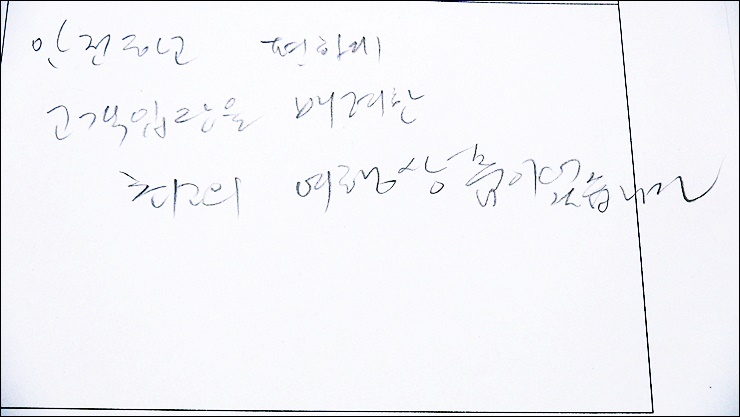 안전하고 편하게
고객입장을 배려한
최고의 여행상품이었습니다